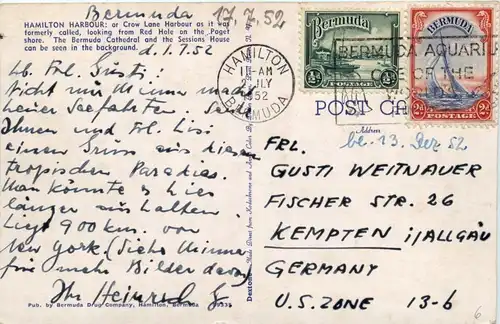 Bermuda 17.7.52
HAMILTON HARBOUR: or Crow Lane Harbour as it was
formerly called, looking from Red Hole on the Paget
shore. The Bermuda Cathedral and the Sessions House
can be seen in the background.
d. 1.7.52
Lb. Frl. Gusti:
Nicht nur Minna macht
Seefahrten
Ihnen und Frl. Lisi
einen Gruss aus diesem
tropischen Paradies.
Man könnte s hier
länger aushalten.
Liegt 900 km. von
New York (Siehe Minna
für mehr Bilder davon)
Ihr Heinrich
Pub. by Bermuda Drug Company, Hamilton, Bermuda
HAMILTON
BERMUDA
11-AM
JLY
1952
Bermuda
½d POSTAGE ½d
BERMUDA
2d POSTAGE 2d
BERMUDA AQUARIUM
ONE OF THE
POST CARD
Address
be. 13. 52
FRL.
GUSTI WEITNAUER
FISCHER STR. 26
KEMPTEN i/ALLGÄU
GERMANY
U.S. ZONE 13-b
6